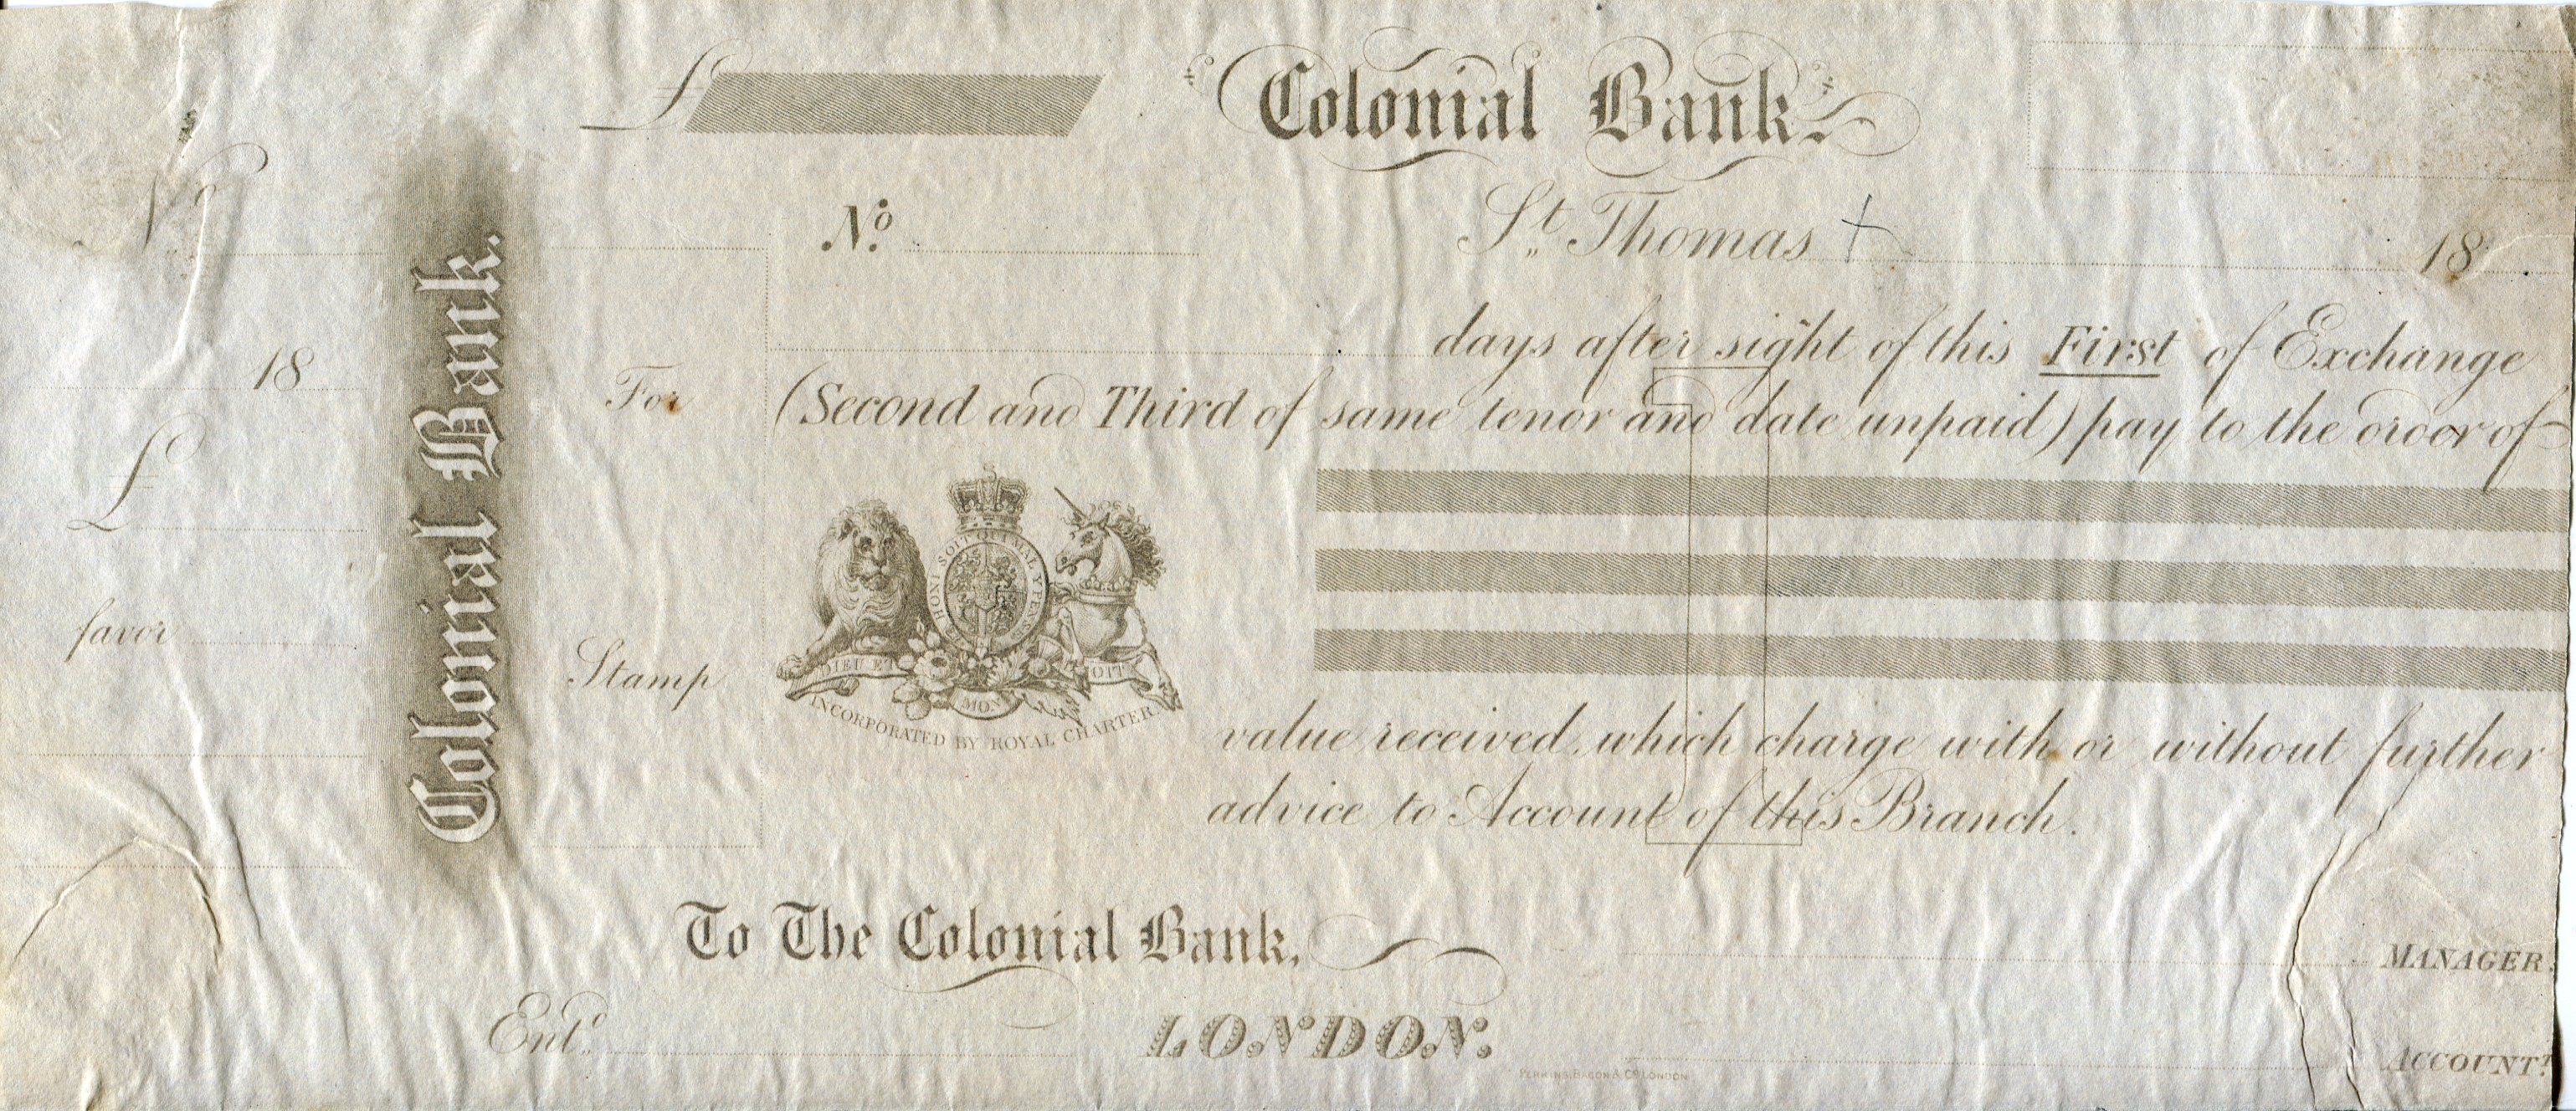 Nº
18
£
favor
Colonial Bank.
£
Colonial Bank.
Nº
St. Thomas
18
For
Stamp
days after sight of this First of Exchange
(Second and Third of same tenor and date unpaid) pay to the order of
HONI SOIT QUI MAL Y PENSE
DIEU ET MON DROIT
INCORPORATED BY ROYAL CHARTER.
value received, which charge with or without further
advice to Account of this Branch.
To The Colonial Bank,
LONDON.
Entd.
MANAGER.
ACCOUNTT.
PERKINS, BACON & Co. LONDON